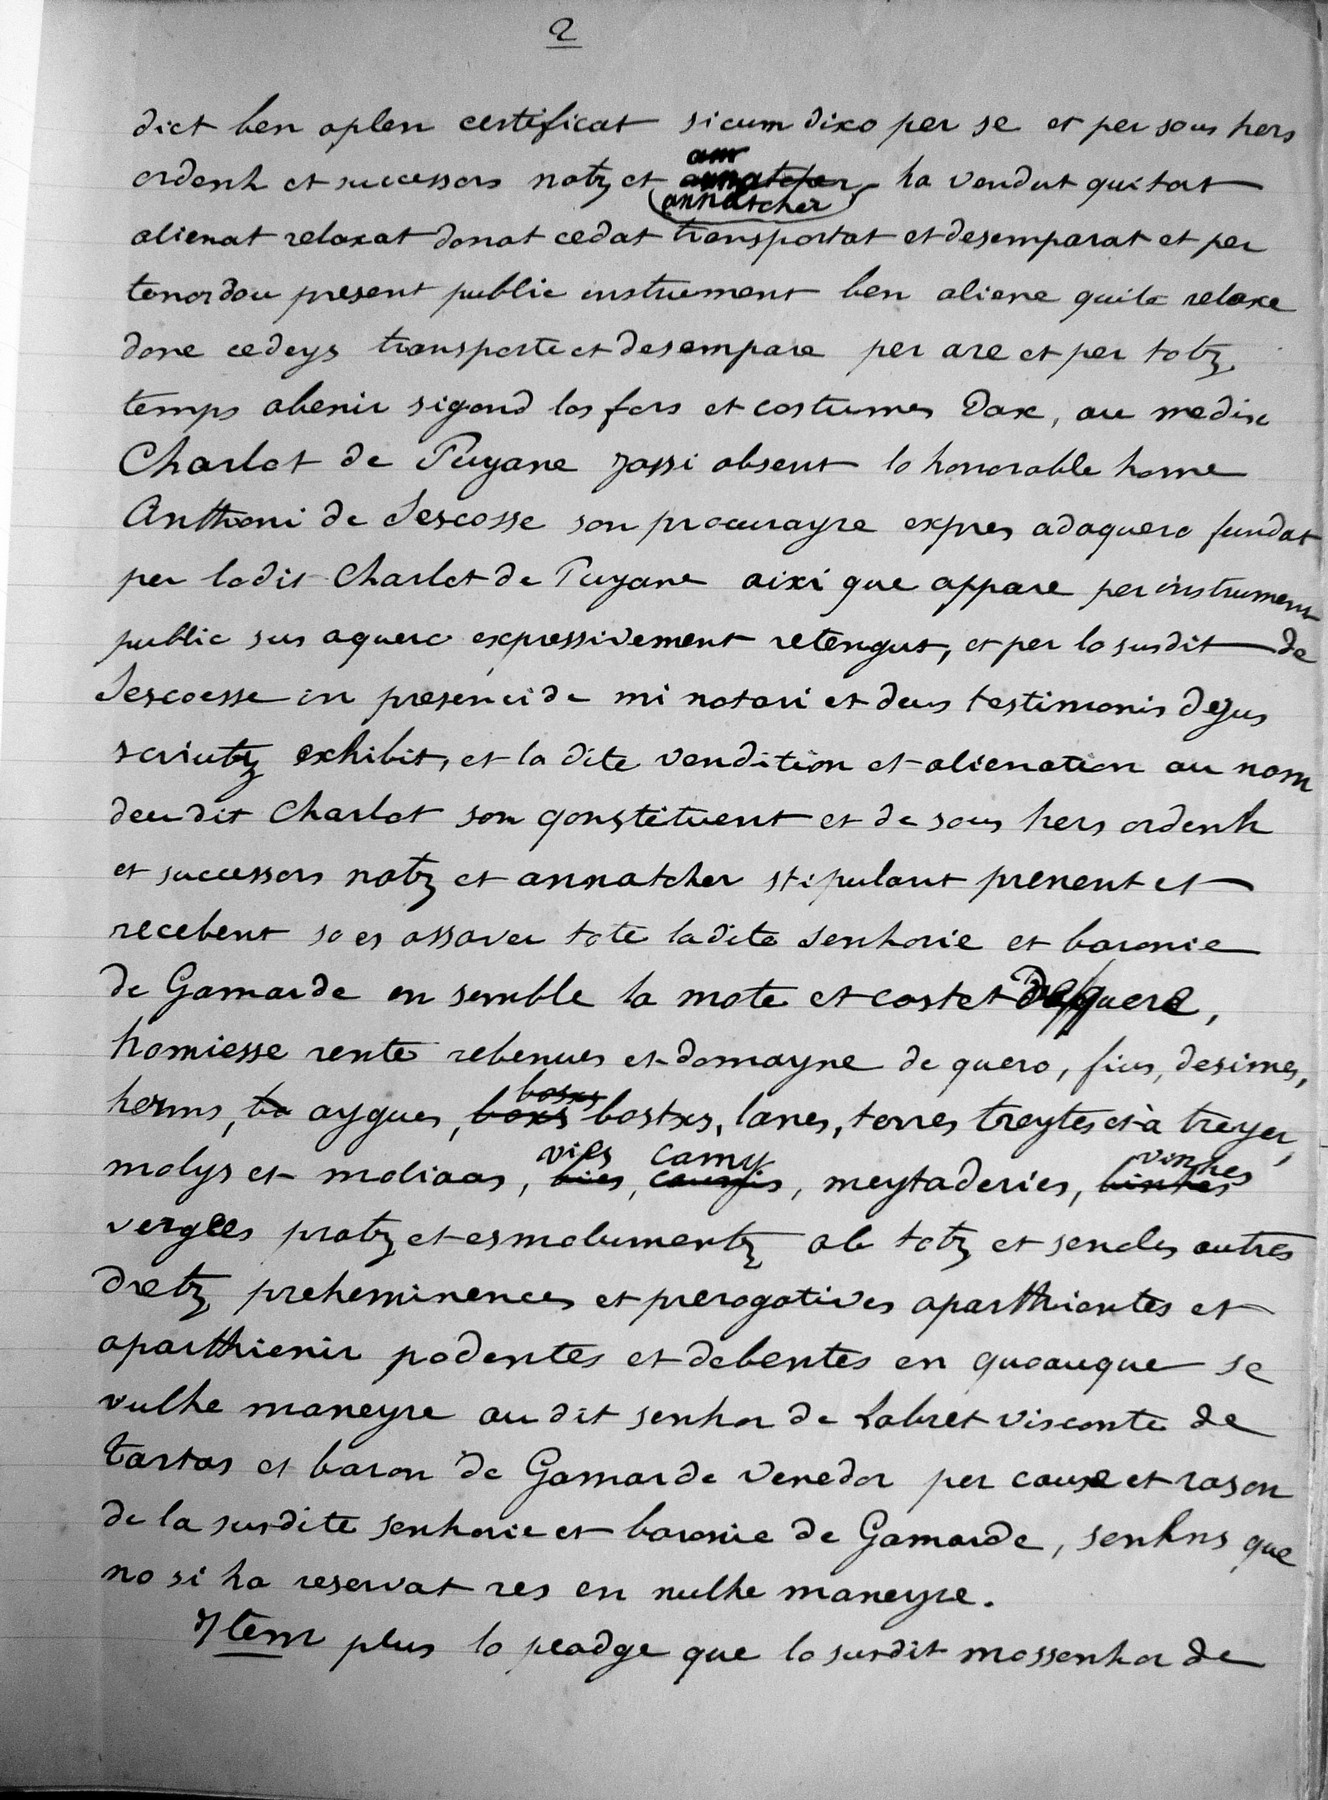 2
dict ben aplen certificat sicum dixo per se et per sous hers
ordenh et successors natz et annatcher ha vendut quitat
alienat relaxat donat cedat transportat et desemparat et per
tenor dou present public instrument ben aliene quite relaxe
done cedeys transporte et desempare per are et per totz
temps abenir sigond los fors et costumes Dax, au medix
Charlot de Puyane jassi absent lo honorable home
Anthoni de Sescosse son procurayre expres adaquero fundat
per lodit Charlot de Puyane aixi que appare per instrument
public sus aquero expressivement retengut, et per lo susdit de
Sescoesse en presenci de mi notari et deus testimonis dejus
scriutz exhibit, et la dite vendition et alienation au nom
deu dit Charlot son qonstituent et de sous hers ordenh
et successors natz et annatcher stipulant prenent et
recebent so es assaver tote ladite senhorie et baronie
de Gamarde en semble la mote et costet Daquere,
homiesse rente rebenues et domayne de quero, fius, desimes,
herms, ba aygues, boxs bosxs bostxs, lanes, terres treytes et à treyer,
molys et moliaas, bies vies, caumis camy, meytaderies, binhes vinhes
vergees pratz et esmolumentz ab totz et sencles autres
dretz preheminences et prerogatives aparthientes et
aparthienir podentes et debentes en quoauque se
vulhe maneyre au dit senhor de Labret visconte de
Tartas et baron de Gamarde venedor per cause et rason
de la susdite senhorie et baronie de Gamarde, senhns que
no si ha reservat res en nulhe maneyre.
Item plus lo peadge que lo susdit mossenhor de